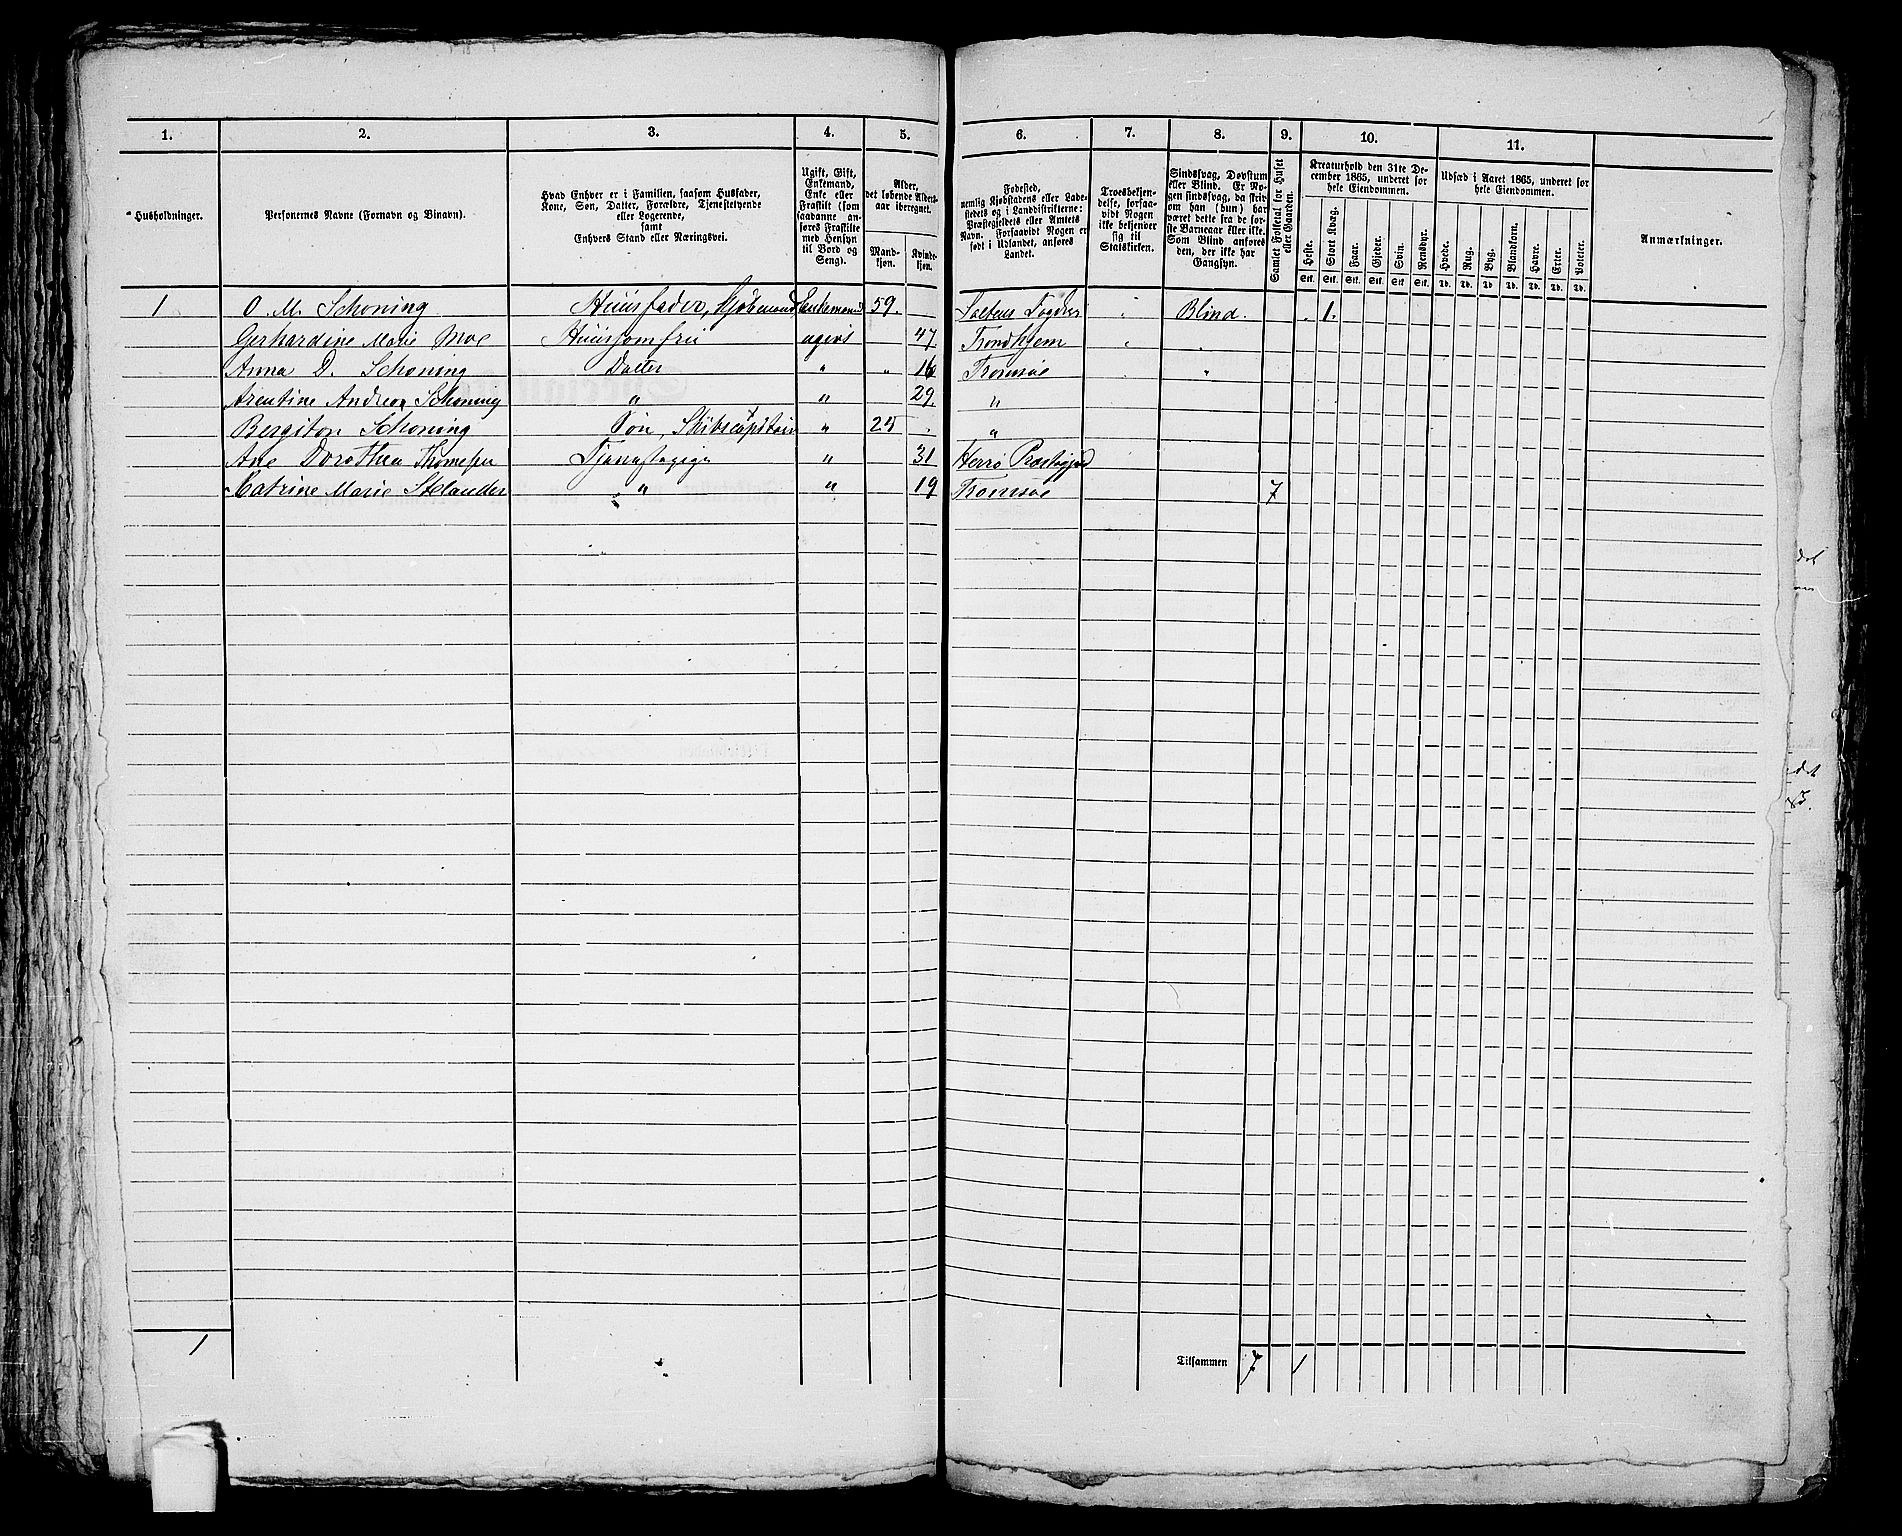 1. 2. 3. 4. 5. 6. 7. 8. 9. 10. 11.
Husholdninger.
Personernes Navne (Fornavn og Binavn).
Hvad Enhver er i Familien, saasom Husfader,
Kone, Søn, Datter, Forældre, Tjenestetyende
eller Logerende,
samt
Enhvers Stand eller Næringsvei.
Ugift, Gift,
Enkemand,
Enke eller
Fraskilt (som
saadanne an-
føres Fraskilte
med Hensyn
til Bord og
Seng).
Alder,
det løbende Alders-
aar iberegnet.
Mand-
kjøn.
Kvinde-
kjøn.
Fødested,
nemlig Kjøbstadens eller Lade-
stedets og i Landdistrikterne:
Præstegjeldets eller Amtets
Navn. Forsaavidt Nogen er
født i Udlandet, anføres
Landet.
Troesbekjen-
delse, forsaa-
vidt Nogen
ikke bekjender
sig til
Statskirken.
Sindssvag, Døvstum
eller Blind. Er No-
gen sindssvag, da skri-
ves om han (hun) har
været dette fra de før-
ste Barneaar eller ikke.
Som Blind anføres
den, der ikke har
Gangsyn.
Samlet Folketal for Huset
eller Gaarden.
Kreaturhold den 31te De-
cember 1865, underet for
hele Eiendommen.
Heste. Stort Kvæg. Faar. Gjeder. Svin. Rensdyr.
Stk. Stk. Stk. Stk. Stk. Stk.
Udsæd i Aaret 1865, underet for
hele Eiendommen.
Hvede. Rug. Byg. Blandkorn. Havre. Erter. Poteter.
Td. Td. Td. Td. Td. Td. Td.
Anmærkninger.
1 O. M. Schøning Huusfader, Kjøbmand Enkemand 59. Saltens Fogderi Blind. 1.
Gerhardine Marie Moe Huusjomfru ugivt 47 Trondhjem
Anna D. Schøning Datter " 16 Tromsøe "
Arentine Andrea Schøning " " 29. "
Bergiton Schøning Søn, Skibscapitain " 25 "
Ane Dorothea Thomesen " 31 Herrø Præstegjed
Katrine Marie " " 19 Tromsøe 7
1 Tilsammen 7 1